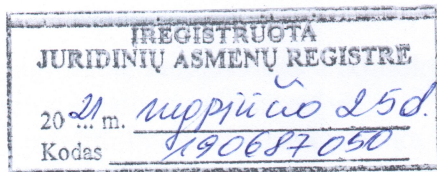 ĮREGISTRUOTA
JURIDINIŲ ASMENŲ REGISTRE
2021 m. rugpjūčio 25d.
Kodas 190687050